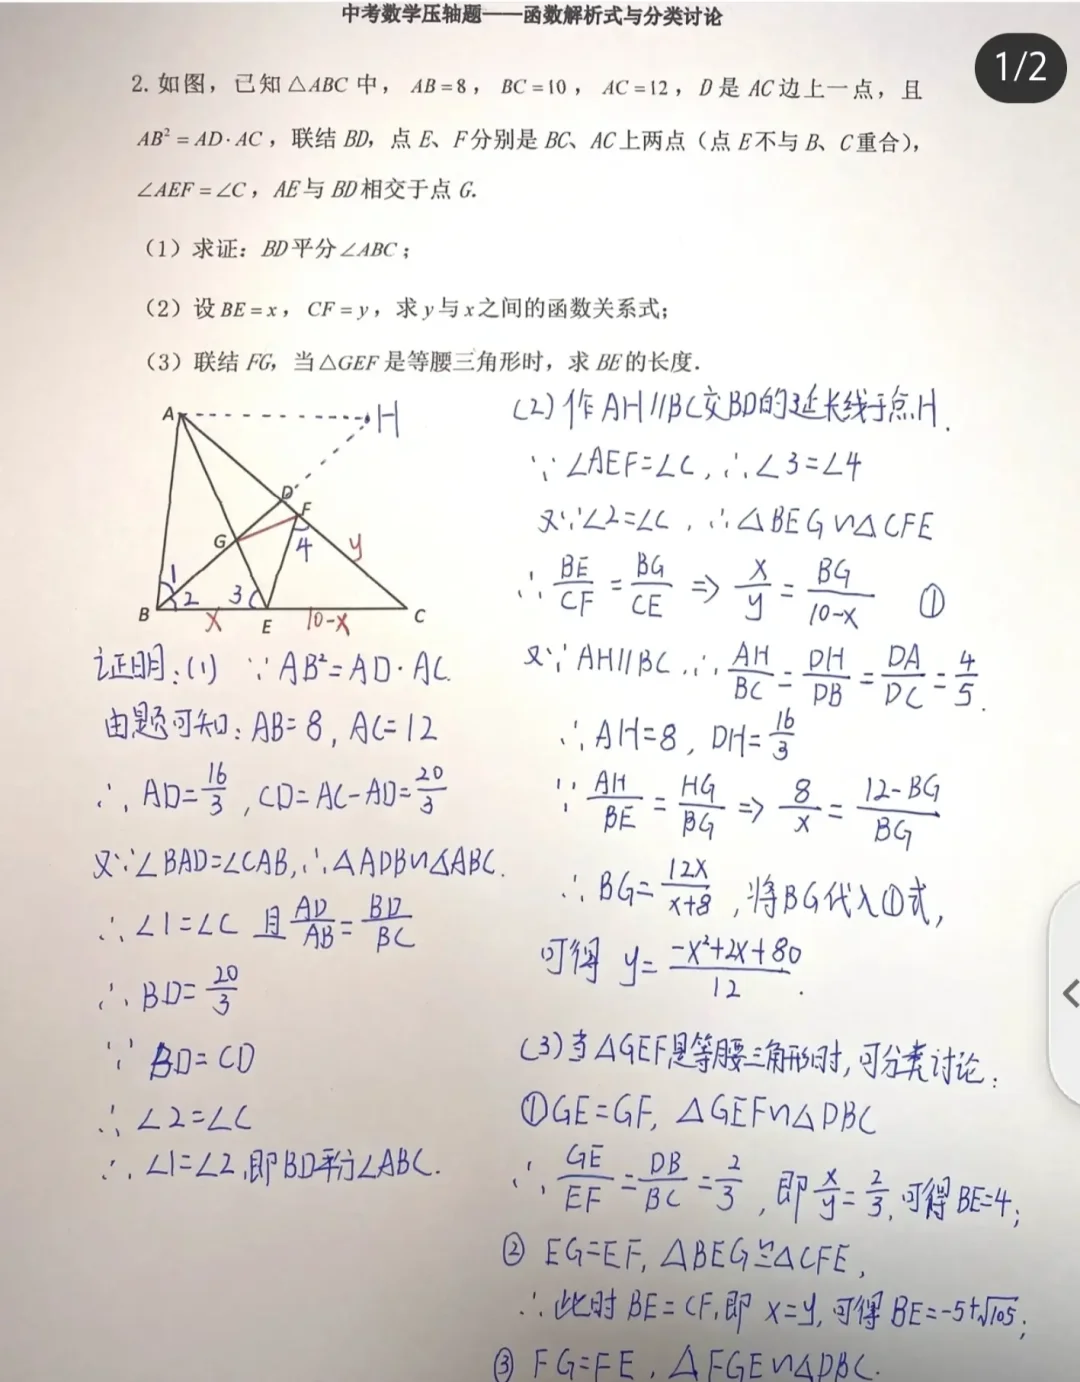 中考数学压轴题——函数解析式与分类讨论
1/2
2. 如图，已知△ABC 中，AB=8，BC=10，AC=12，D 是 AC 边上一点，且
AB²=AD·AC，联结 BD，点 E、F 分别是 BC、AC 上两点（点 E 不与 B、C 重合），
∠AEF=∠C，AE 与 BD 相交于点 G.
（1）求证：BD 平分∠ABC；
（2）设 BE=x，CF=y，求 y 与 x 之间的函数关系式；
（3）联结 FG，当△GEF 是等腰三角形时，求 BE 的长度.
A H
D
F
G 4 y
1
2 3
B x E 10-x C
证明：(1) ∵AB²=AD·AC.
由题可知：AB=8, AC=12
∴AD=16/3, CD=AC-AD=20/3
又∵∠BAD=∠CAB, ∴△ADB∽△ABC.
∴∠1=∠C 且 AD/AB=BD/BC
∴BD=20/3
∵BD=CD
∴∠2=∠C
∴∠1=∠2, 即BD平分∠ABC.
(2) 作AH//BC交BD的延长线于点H.
∵∠AEF=∠C, ∴∠3=∠4
又∵∠2=∠C, ∴△BEG∽△CFE
∴BE/CF=BG/CE ⇒ x/y=BG/10-x ①
又∵AH//BC, ∴AH/BC=DH/DB=DA/DC=4/5.
∴AH=8, DH=16/3
∵AH/BE=HG/BG ⇒ 8/x=12-BG/BG
∴BG=12x/x+8, 将BG代入①式,
可得 y=-x²+2x+80/12.
(3) 当△GEF是等腰三角形时, 可分类讨论:
①GE=GF, △GEF∽△DBC
∴GE/EF=DB/BC=2/3, 即x/y=2/3, 可得BE=4;
② EG=EF, △BEG≌△CFE,
∴此时BE=CF, 即 x=y, 可得BE=-5+√105;
③ FG=FE, △FGE∽△DBC.